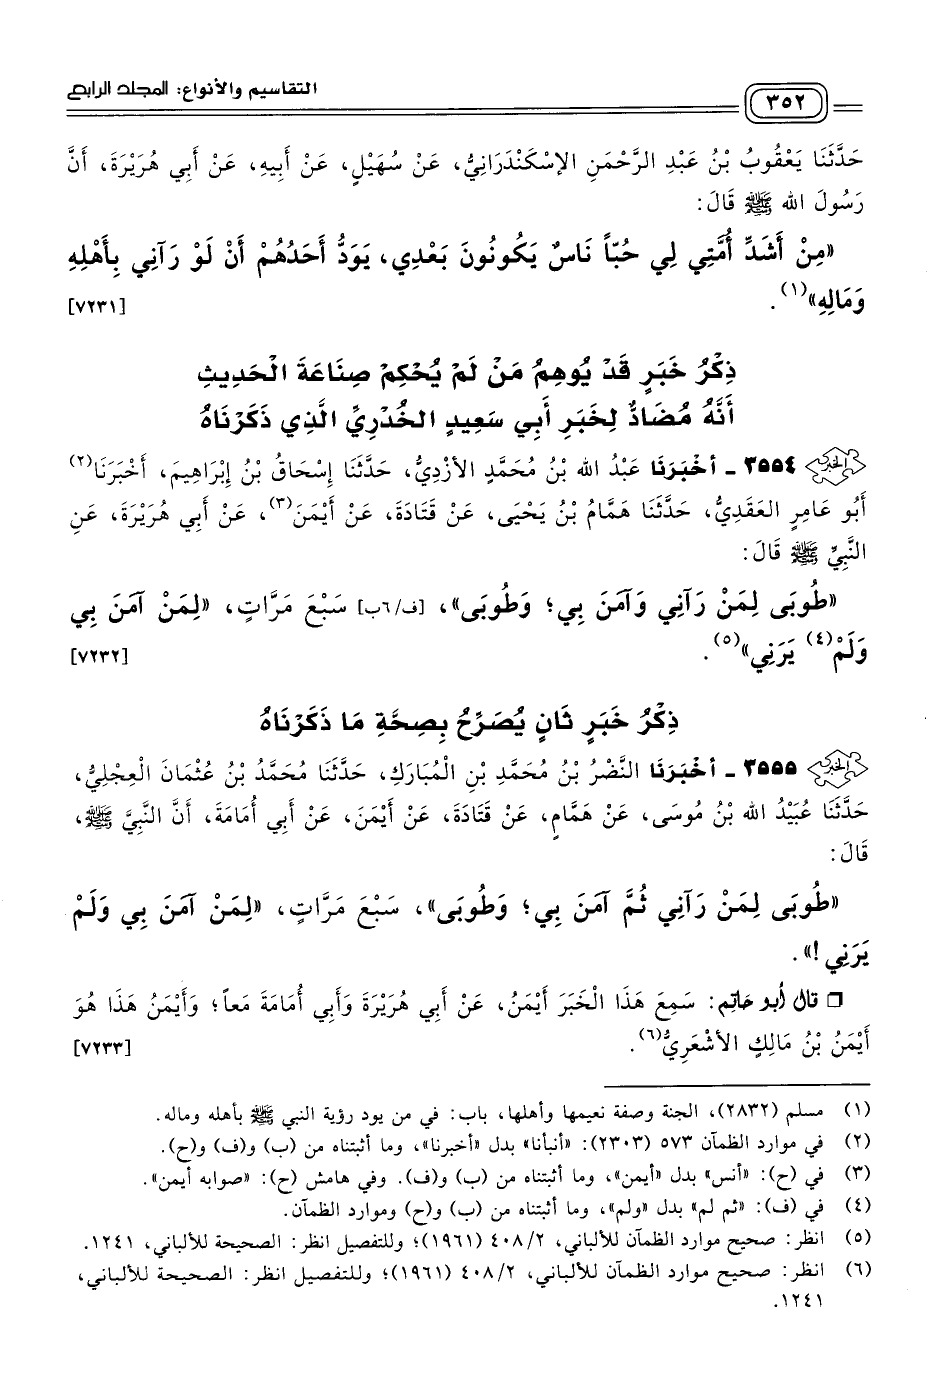 ٣٥٢
التقاسيم والأنواع: المجلد الرابع
حَدَّثَنَا يَعْقُوبُ بْنُ عَبْدِ الرَّحْمَنِ الإسْكَنْدَرَانِيُّ، عَنْ سُهَيْلٍ، عَنْ أَبِيهِ، عَنْ أَبِي هُرَيْرَةَ، أَنَّ
رَسُولَ الله ﷺ قَالَ:
«مِنْ أَشَدِّ أُمَّتِي لِي حُبّاً نَاسٌ يَكُونُونَ بَعْدِي، يَوَدُّ أَحَدُهُمْ أَنْ لَوْ رَآنِي بِأَهْلِهِ
وَمَالِهِ»(١). [٧٢٣١]
ذِكْرُ خَبَرٍ قَدْ يُوهِمُ مَنْ لَمْ يُحْكِمْ صِنَاعَةَ الْحَدِيثِ
أَنَّهُ مُضَادٌ لِخَبَرِ أَبِي سَعِيدٍ الخُدْرِيِّ الَّذِي ذَكَرْنَاهُ
٣٥٥٤ - أخْبَرَنَا عَبْدُ الله بْنُ مُحَمَّدٍ الأزْدِيُّ، حَدَّثَنَا إِسْحَاقُ بْنُ إِبْرَاهِيمَ، أَخْبَرَنَا(٢)
أَبُو عَامِرٍ العَقَدِيُّ، حَدَّثَنَا هَمَّامُ بْنُ يَحْيَى، عَنْ قَتَادَةَ، عَنْ أَيْمَنَ(٣)، عَنْ أَبِي هُرَيْرَةَ، عَنِ
النَّبِيِّ ﷺ قَالَ:
«طُوبَى لِمَنْ رَآنِي وَآمَنَ بِي؛ وَطُوبَى»، [ف/٦ب] سَبْعَ مَرَّاتٍ، «لِمَنْ آمَنَ بِي
وَلَمْ(٤) يَرَنِي»(٥). [٧٢٣٢]
ذِكْرُ خَبَرٍ ثَانٍ يُصَرِّحُ بِصِحَّةِ مَا ذَكَرْنَاهُ
٣٥٥٥ - أخْبَرَنَا النَّضْرُ بْنُ مُحَمَّدِ بْنِ الْمُبَارَكِ، حَدَّثَنَا مُحَمَّدُ بْنُ عُثْمَانَ الْعِجْلِيُّ،
حَدَّثَنَا عُبَيْدُ الله بْنُ مُوسَى، عَنْ هَمَّامٍ، عَنْ قَتَادَةَ، عَنْ أَيْمَنَ، عَنْ أَبِي أُمَامَةَ، أَنَّ النَّبِيَّ ﷺ،
قَالَ:
«طُوبَى لِمَنْ رَآنِي ثُمَّ آمَنَ بِي؛ وَطُوبَى»، سَبْعَ مَرَّاتٍ، «لِمَنْ آمَنَ بِي وَلَمْ
يَرَنِي!».
❒ قال أبو حاتِم: سَمِعَ هَذَا الْخَبَرَ أَيْمَنُ، عَنْ أَبِي هُرَيْرَةَ وَأَبِي أُمَامَةَ مَعاً؛ وَأَيْمَنُ هَذَا هُوَ
أَيْمَنُ بْنُ مَالِكٍ الأشْعَرِيُّ(٦). [٧٢٣٣]
(١) مسلم (٢٨٣٢)، الجنة وصفة نعيمها وأهلها، باب: في من يود رؤية النبي ﷺ بأهله وماله.
(٢) في موارد الظمآن ٥٧٣ (٢٣٠٣): «أنبأنا» بدل «أخبرنا»، وما أثبتناه من (ب) و(ف) و(ح).
(٣) في (ح): «أنس» بدل «أيمن»، وما أثبتناه من (ب) و(ف). وفي هامش (ح): «صوابه أيمن».
(٤) في (ف): «ثم لم» بدل «ولم»، وما أثبتناه من (ب) و(ح) وموارد الظمآن.
(٥) انظر: صحيح موارد الظمآن للألباني، ٤٠٨/٢ (١٩٦١)؛ وللتفصيل انظر: الصحيحة للألباني، ١٢٤١.
(٦) انظر: صحيح موارد الظمآن للألباني، ٤٠٨/٢ (١٩٦١)؛ وللتفصيل انظر: الصحيحة للألباني،
١٢٤١.